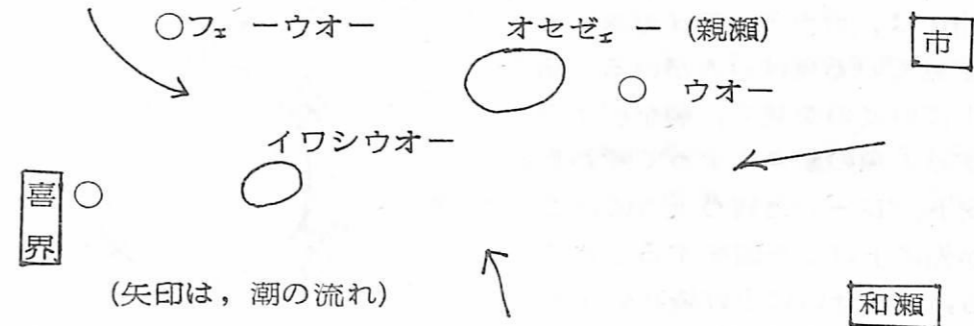 フェーウオー
オセゼェー (親瀬)
市
ウオー
イワシウオー
喜界
(矢印は，潮の流れ)
和瀬